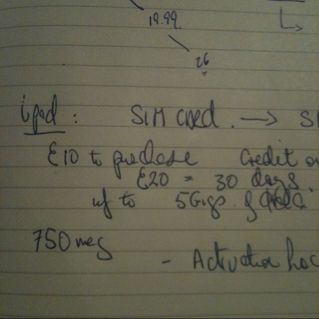 19.99
26
ipad: SIM card. →
£10 to purchase Credit
£20 = 30 days.
up to 5Gigs of
750 meg
- Activation